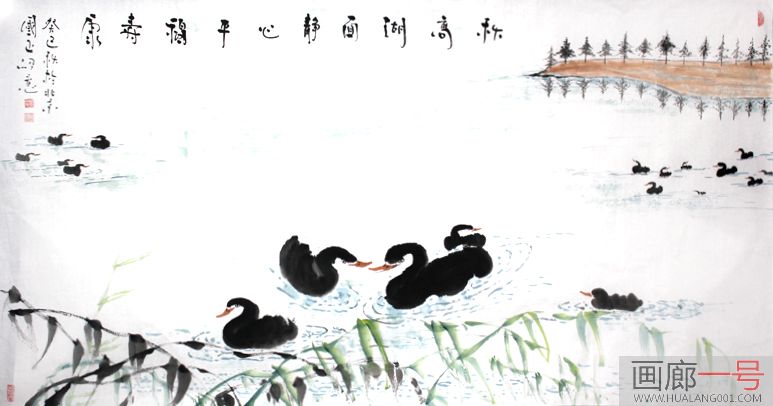 秋高湖面静心平福寿康
癸巳秋於北京
國玉
画廊一号
WWW.HUALANG001.COM